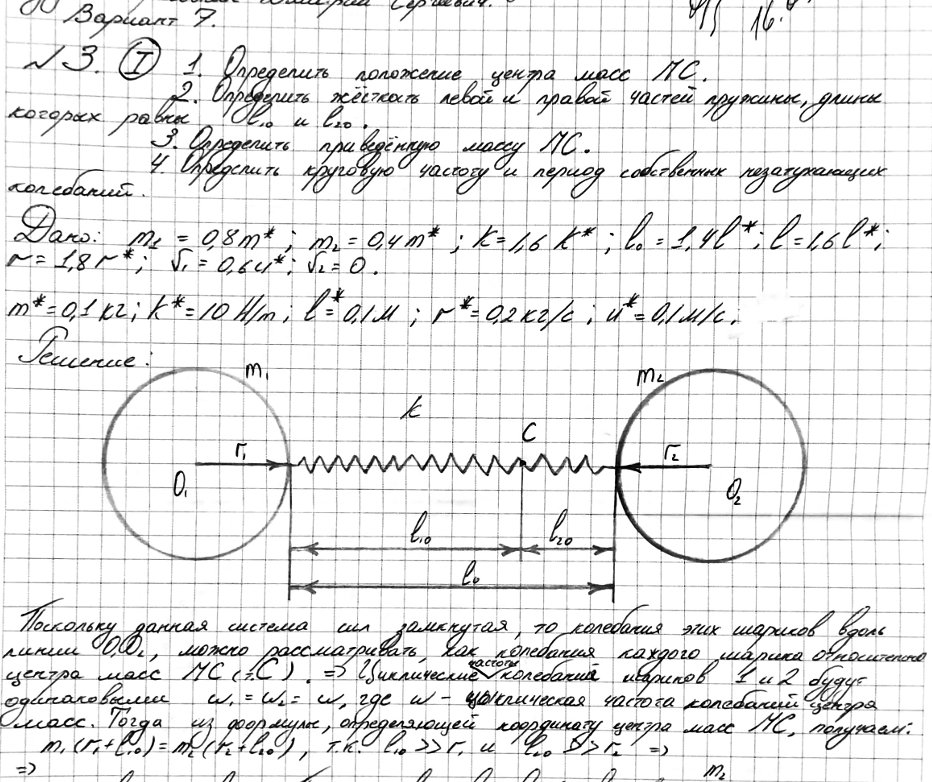 Сергеевич.
Вариант 7.
√3. (I) 1. Определить положение центра масс МС.
2. Определить жёсткость левой и правой частей пружины, длины
которых равны l₁₀ и l₂₀.
3. Определить приведённую массу МС.
4. Определить круговую частоту и период собственных незатухающих
колебаний.
Дано: m₁ = 0,8m*; m₂ = 0,4m*; k = 1,6 k*; l₀ = 1,4l*; l = 1,6l*;
r = 1,8 r*; v₁ = 0,6u*; v₂ = 0.
m* = 0,1 кг; k* = 10 Н/m; l* = 0,1 м; r* = 0,2 кг/с; u* = 0,1 м/с.
Решение:
m₁ m₂
k
C
r₁ r₂
O₁ O₂
l₁₀ l₂₀
l₀
Поскольку данная система сил замкнутая, то колебания этих шариков вдоль
линии O₁O₂, можно рассматривать, как колебания каждого шарика относительно
центра масс МС (т.С). => Циклические частоты колебаний шариков 1 и 2 будут
одинаковыми ω₁ = ω₂ = ω, где ω - циклическая частота колебаний центра
масс. Тогда из формулы, определяющей координату центра масс МС, получаем:
m₁(r₁+l₁₀) = m₂(r₂+l₂₀), т.к. l₁₀ >> r₁ и l₂₀ >> r₂ =>
=> m₂